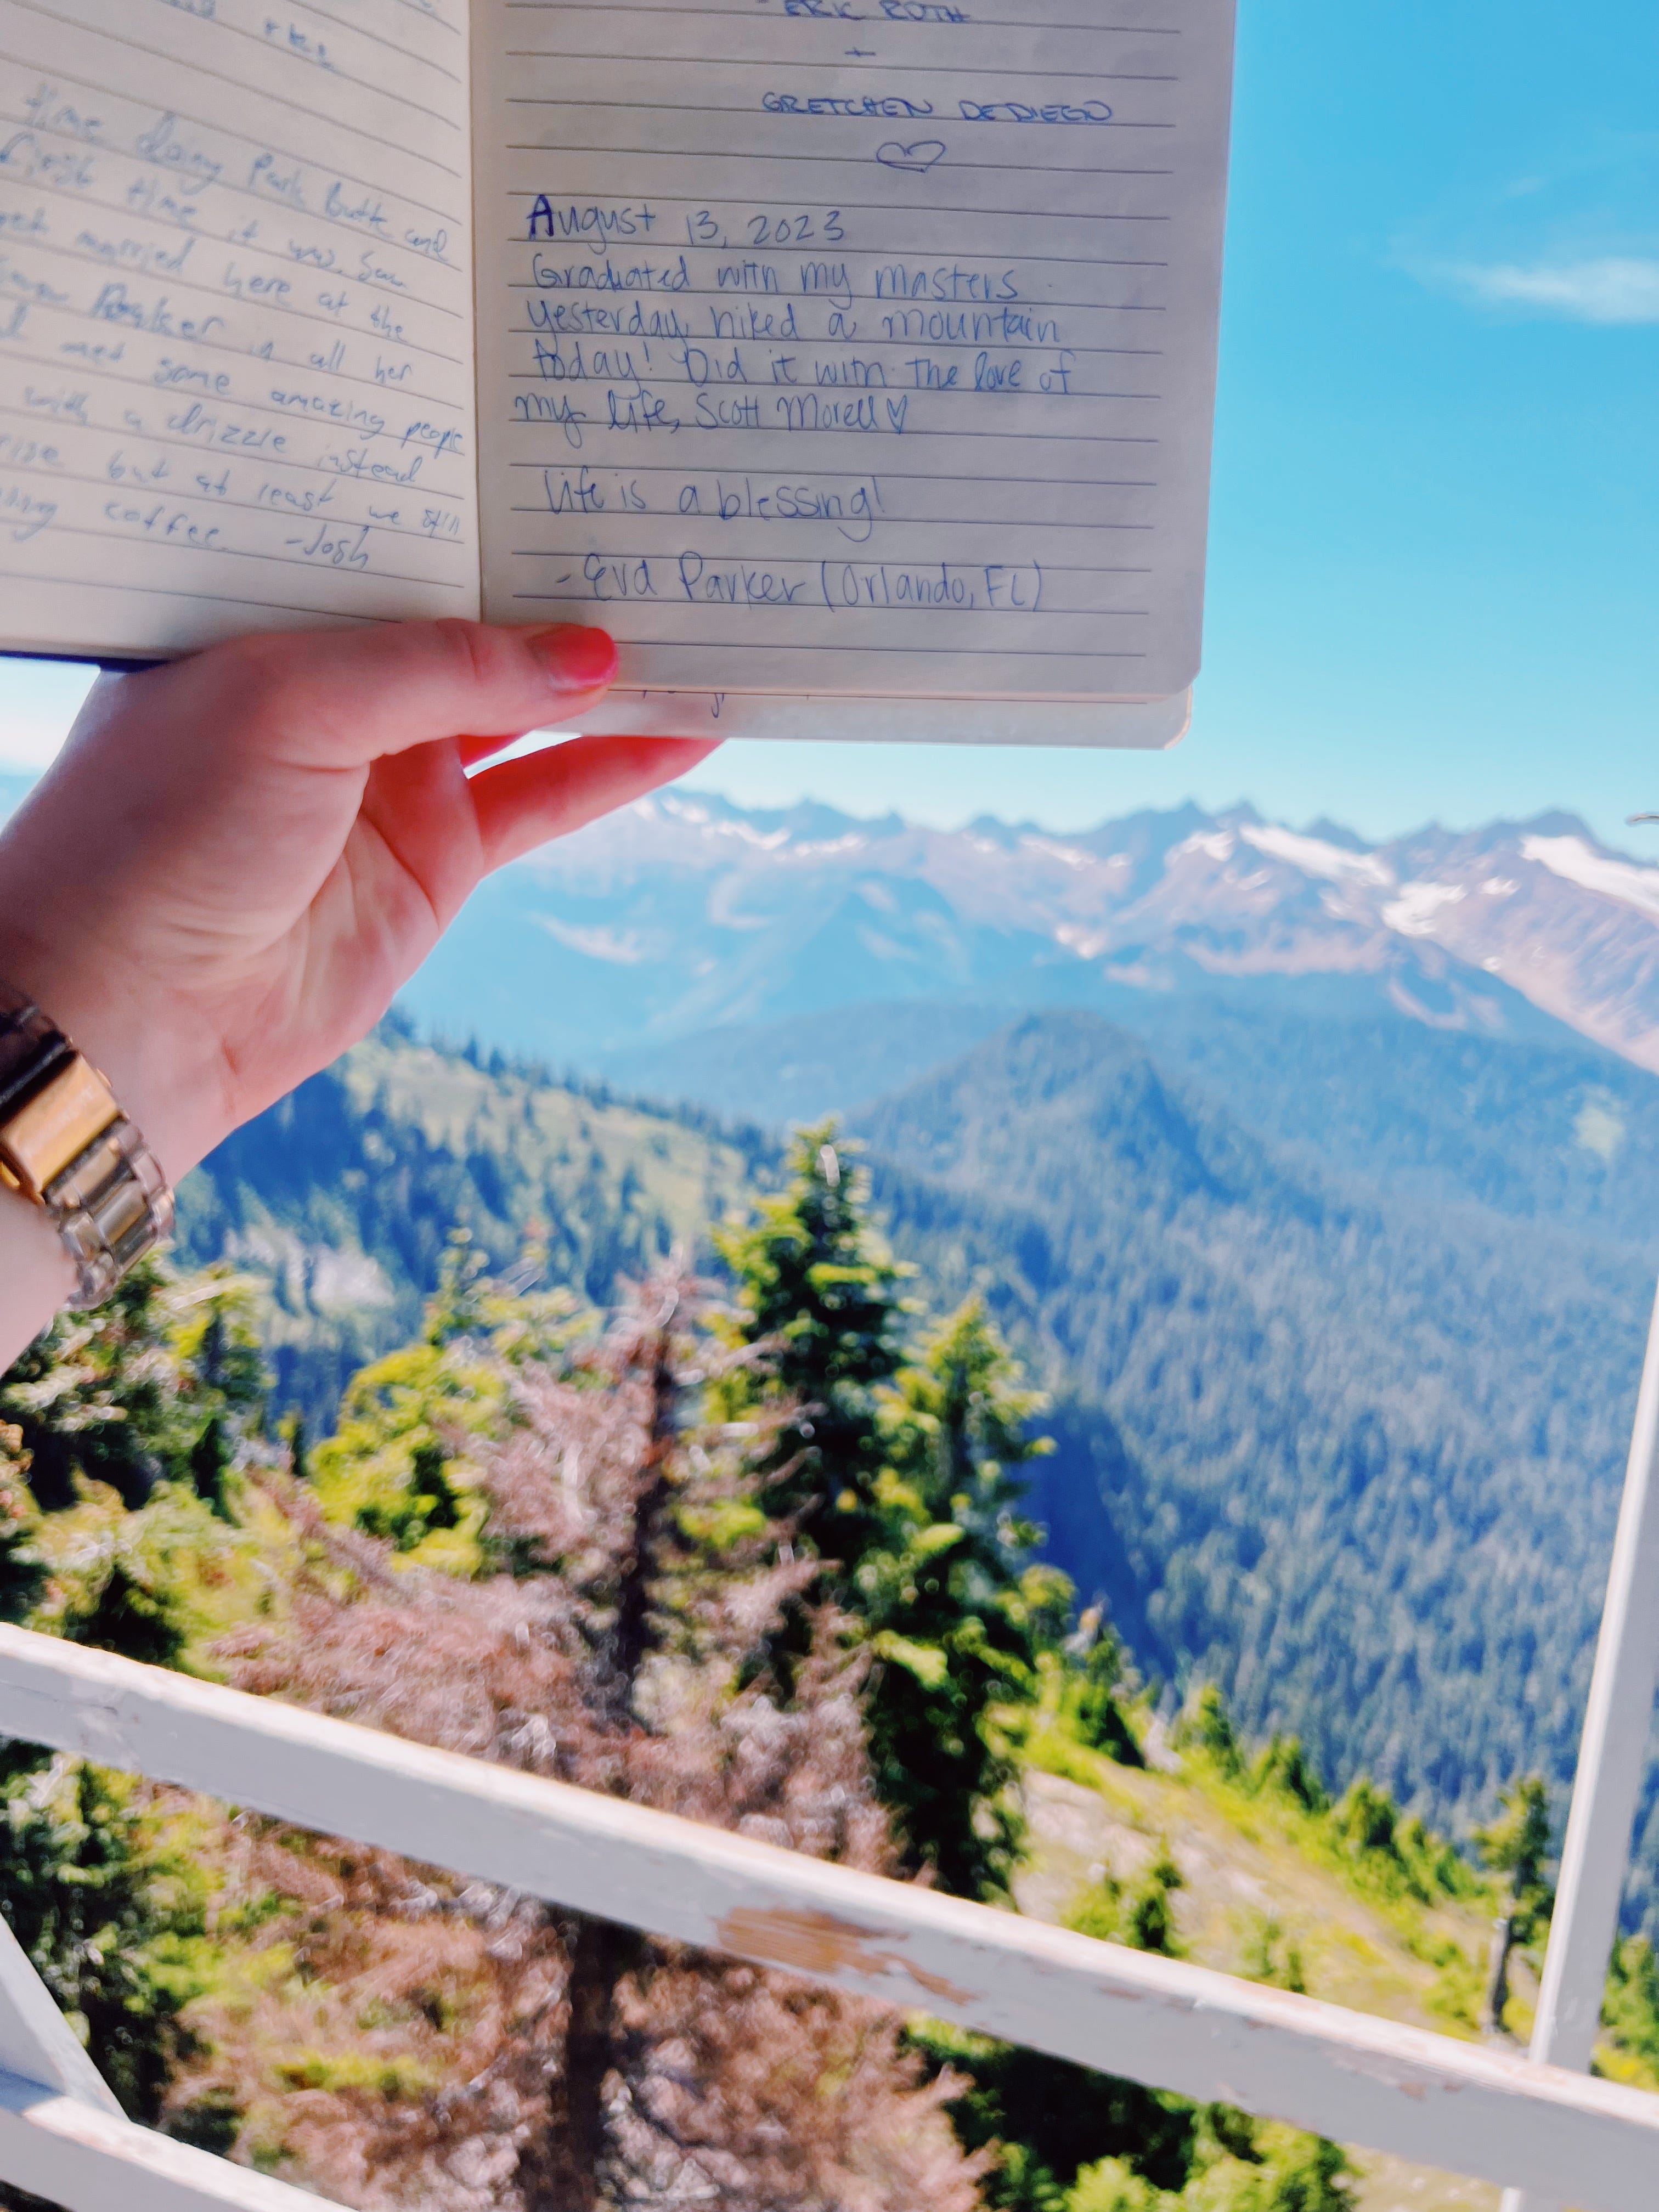 time doing Park Butt and
first time it was. Saw
get married here at the
Baker in all her
met some amazing people
with a drizzle instead
but at least we still
coffee. -Josh
ERIC ROTH
+
GRETCHEN DEDIEGO
August 13, 2023
Graduated with my masters
yesterday, hiked a mountain
today! Did it with the love of
my life, Scott Morell♡
Life is a blessing!
- Eva Parker (Orlando, FL)